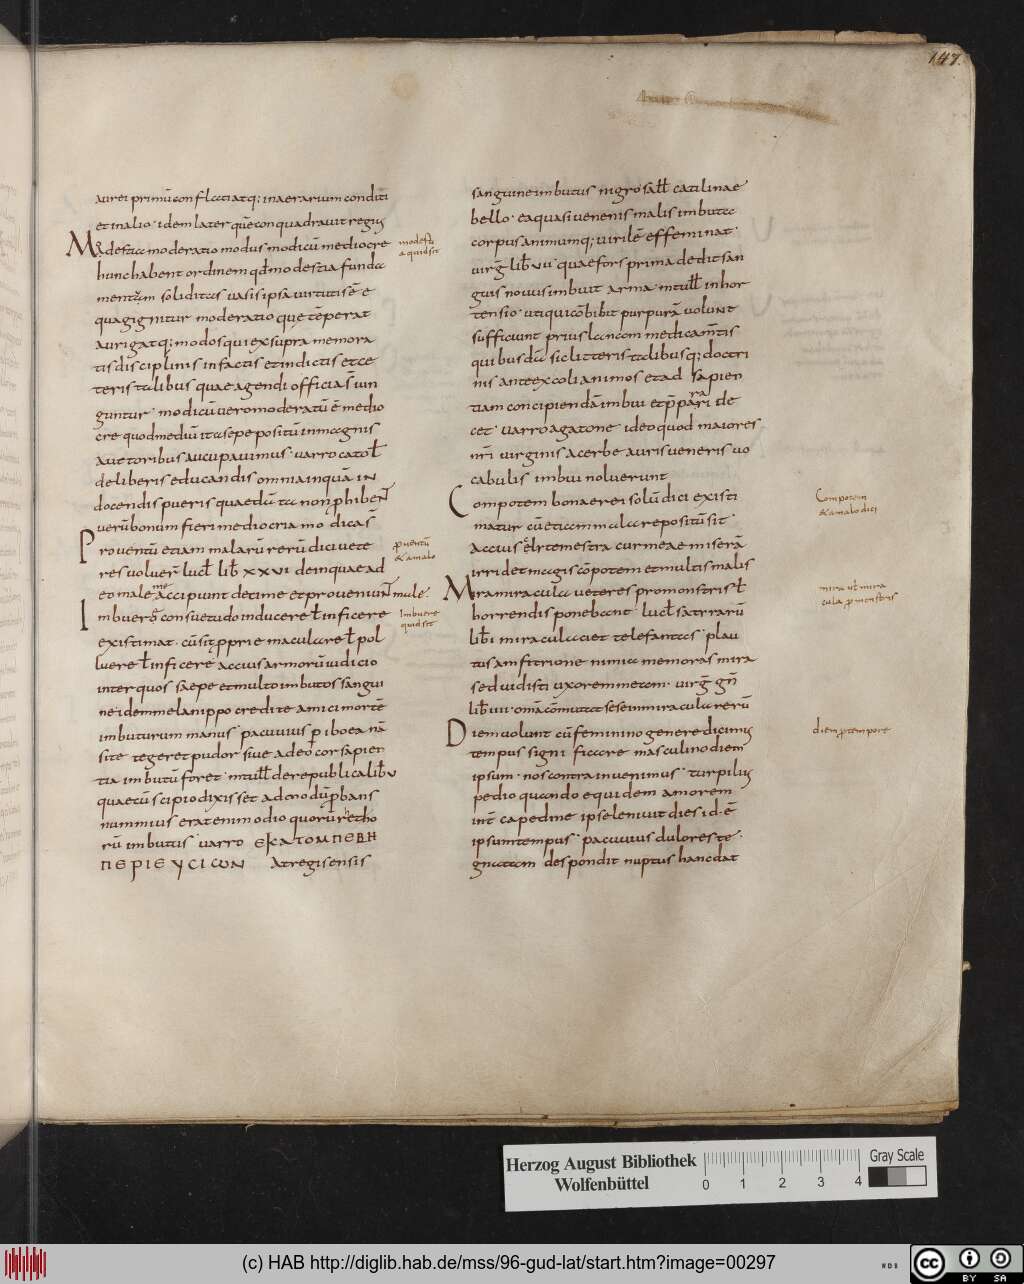 147.
aurei primū conflati atq; in aerarium conditi
et in alio· idem later quē conquadravit regius
Modestia moderatio modus modicū mediocre
hunc habent ordinem qđ modestia funda
mentum soliditas vasis ipsa virtutis ē e
qua gignitur moderatio que tēperat
aurigatq; modos qui ex supra memora
tis disciplinis in factis et in dictis et ce
teris talibus quae agendi officia s̄ iun
guntur· modicū vero moderatū ē medio
cre quod mediū ita sepe positū in magnis
auctoribus aucupavimus· varro catoł
de liberis educandis omnia inquā in
docendis pueris quaedū ta non p̱hibent̄
verū bonum fieri mediocria mo dicas̄
Proventū etiam malarū rerū dici vete
res voluer̄ lucł lib̄ xxvi deinquae ad
eo male me accipiunt decime et proveniun̄ male·
Imbuere consuetudo inducere ł inficere
existimat· cū sit p̱prie maculare ł pol
luere ł inficere accius armorū iudicio
inter quos saepe et multo imbutos sangui
ne idem melanippo credite amici mortē
imbuturum manus· pacuvius p̱iboea nā
si te tegeret pudor sive adeo cor sapien
tia imbutū foret· mtułł de republica lib̄ v
quae cū scipio dixisset ad modū p̱bans
nummius erat enim odio quorū rethō
rū imbutus· varro εκατομπεβη
περιευσιων Atregis ensis
modestia
a quid sit
p̱ventū
& a malo
Imbuere
quid sit
sanguine imbutus nigro sałł catilinae
bello· ea quasi venenis malis imbuta
corpus animumq; virilē effeminat·
virḡ lib̄ vii· quae fors prima dedit san
guis novus imbuit arma· mtułł in hor
tensio· uti qui cōbibi purpurā volunt
sufficiunt prius lanam medicam̄tis
quibusdā sic litteris talibusq; doctri
nis ante excoli animos et ad sapien
tiam concipiendā imbui et p̄parari de
cet· varro agatone ideo quod maiores
nr̄i virginis acerbe auris veneris vo
cabulis imbui noluerunt
Compotem bonae rei solū dici existi
matur cū etiam in mala repositū sit·
accius clytemestra cur me ae miserā
irridet magis cōpotem et multis malis
Mira miracula veteres pro monstris ł
horrendis ponebant· lucł satrrarū
lib̄ i miracula ciet telefantas· plau
tus amfitrione nimia memoras mira
sed vidisti uxorem metam· virḡ gn̄
lib̄ iiii· om̄a cōmutat sese in miracula rerū
Diem volunt cū feminino genere dicimus
tempus significare masculino diem
ipsum· nos contra invenimus· turpilius
pedio quando equidem amorem
int̄ capedine ipse lenivit dies id· ē
ipsum tempus· pacuvius duloreste·
gnatam despondit nuptus hanc dat
Compotem
& a malo dici
mira ul mira
cula p̱ monstris
diem p̱ tempore
Herzog August Bibliothek
Wolfenbüttel
0 1 2 3 4
Gray Scale
(c) HAB http://diglib.hab.de/mss/96-gud-lat/start.htm?image=00297
WDB
cc BY SA